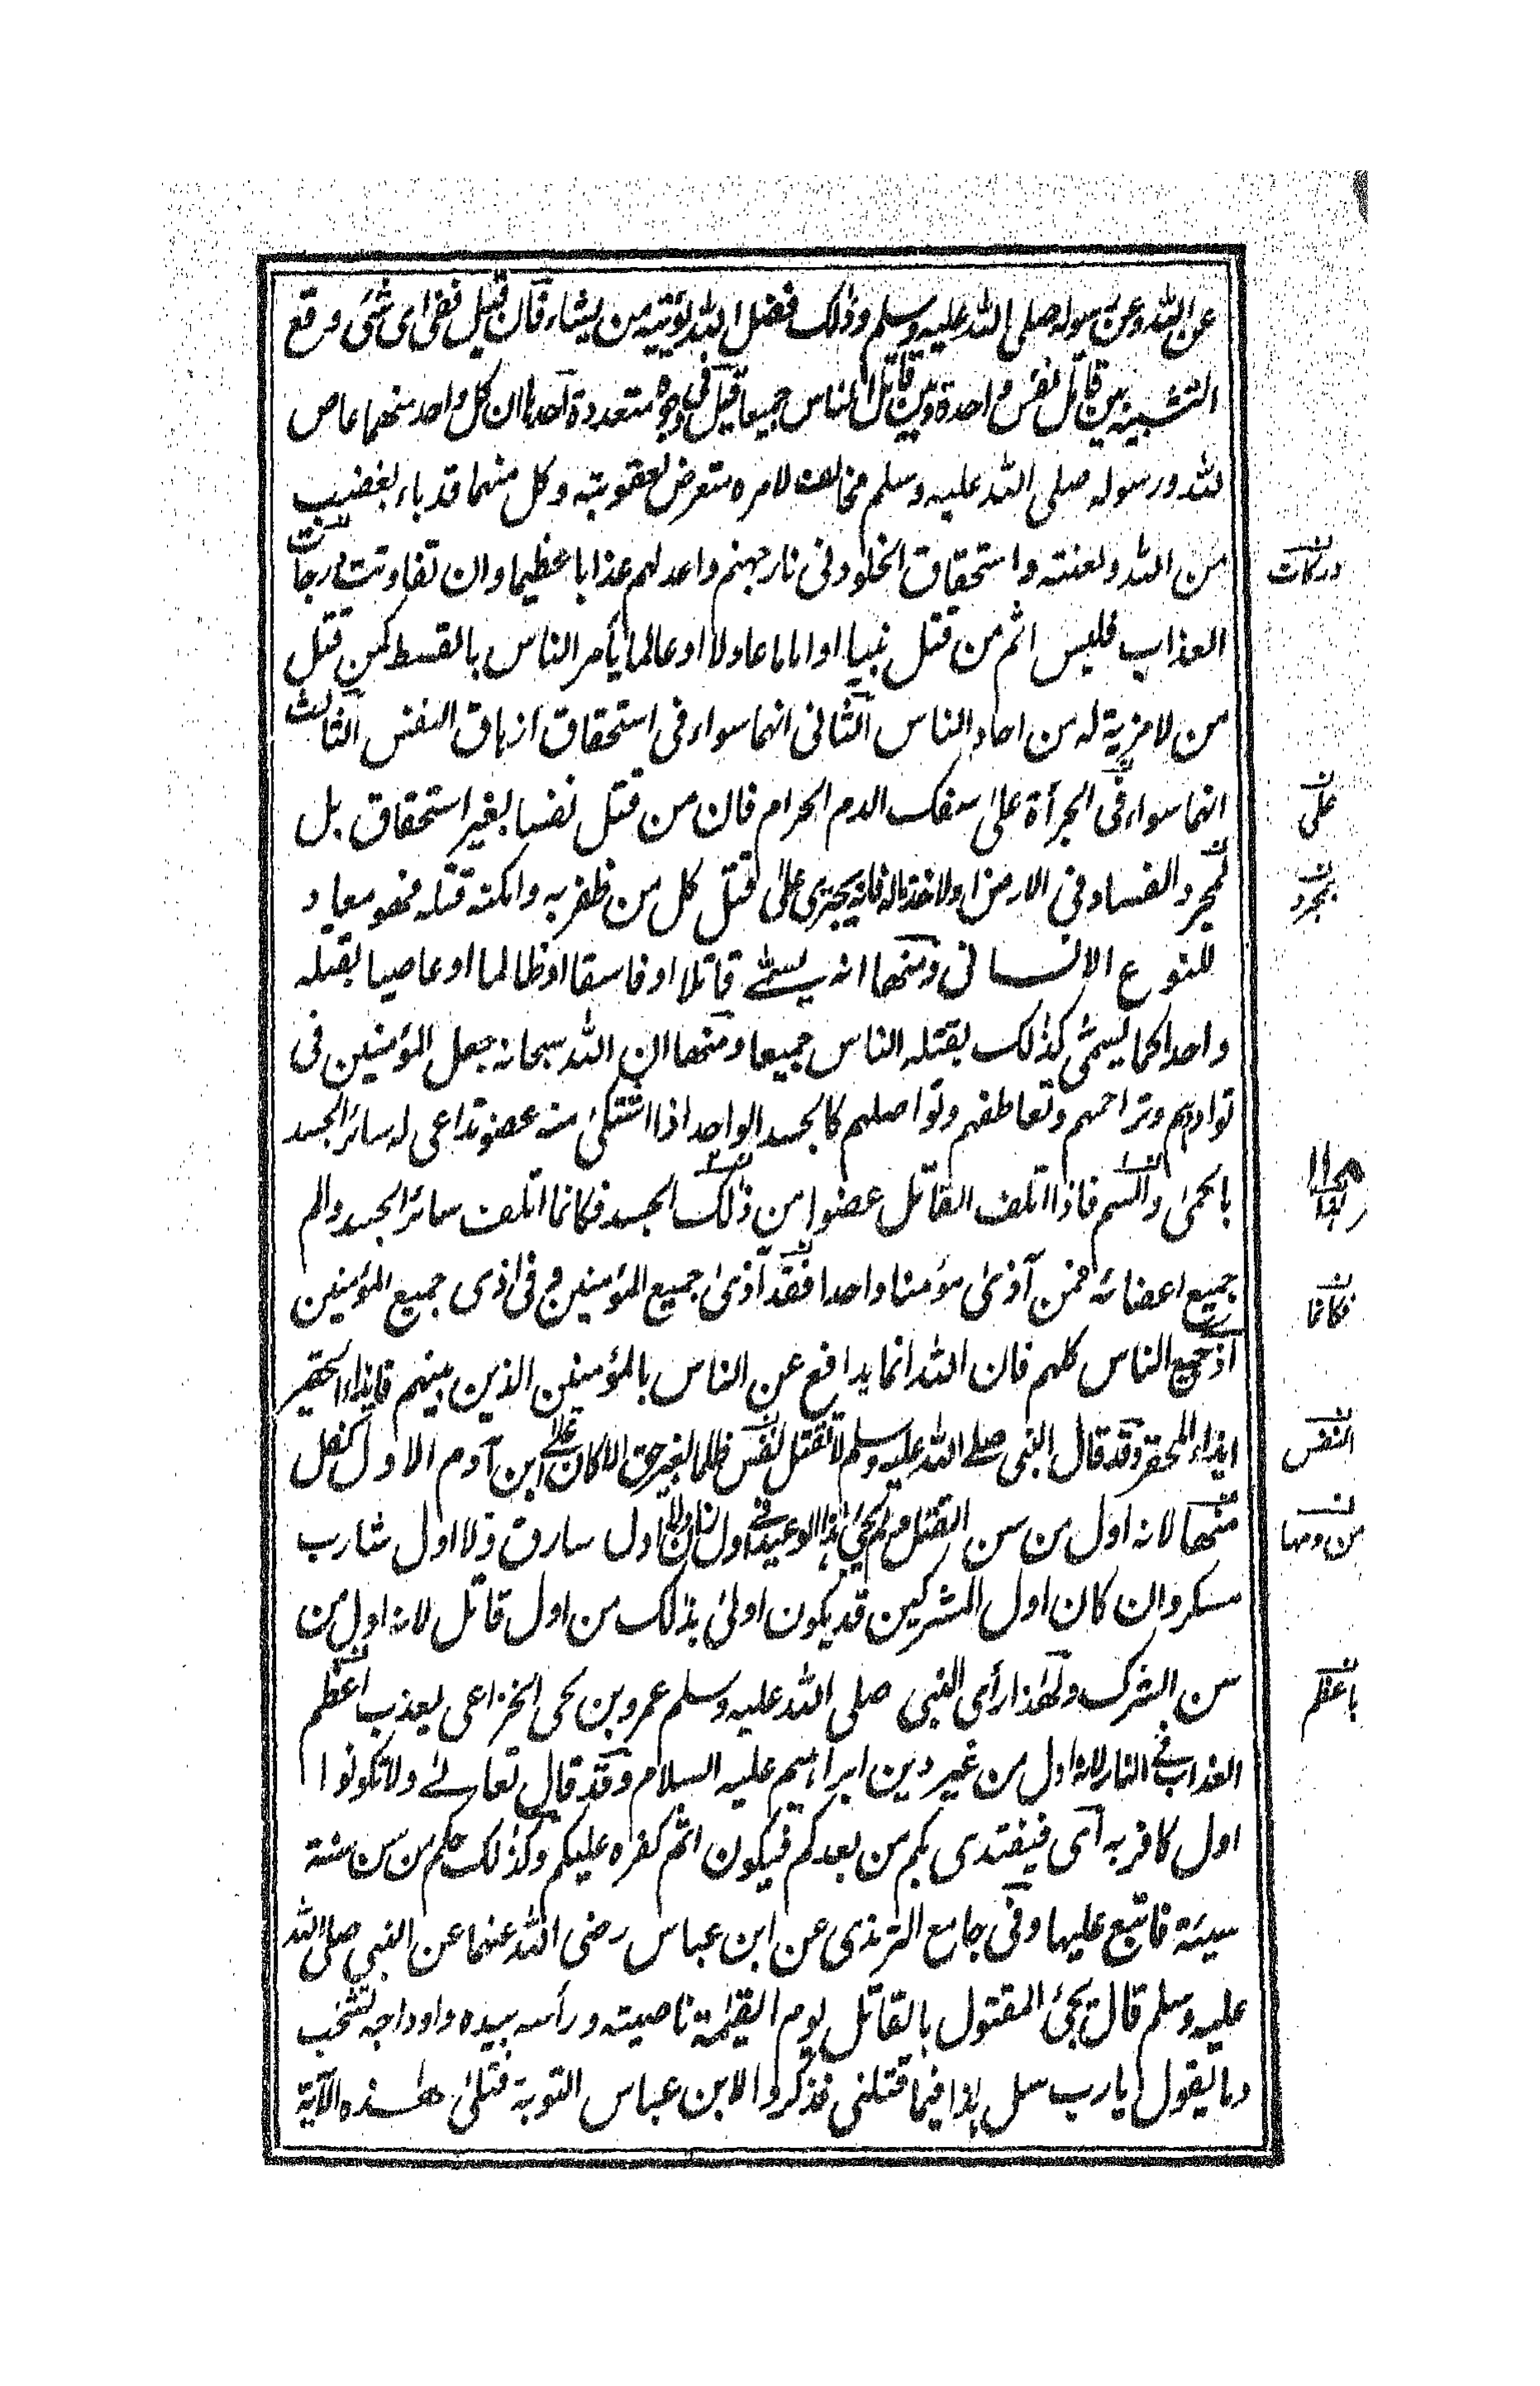 عن الله وعن رسوله صلى الله عليه وسلم وذلك فضل الله يؤتيه من يشاء فان قيل ففى اى شئ وقع
التشبيه بين قاتل نفس واحدة وبين قاتل الناس جميعا قيل فى وجوه متعددة احدها ان كل واحد منهما عاص
لله ورسوله صلى الله عليه وسلم مخالف لامره متعرض لعقوبته وكل منهما قد باء بغضب
من الله ولعنته واستحقاق الخلود فى نار جهنم واعد لهم عذابا عظيما وان تفاوتت درجات
دركات
العذاب فليس اثم من قتل نبيا او اماما عادلا او عالما يأمر الناس بالقسط كمن قتل
من لا مزية له من احاد الناس الثانى انهما سواء فى استحقاق ازهاق النفس الثالث
انهما سواء فى الجرأة على سفك الدم الحرام فان من قتل نفسا بغير استحقاق بل
على
لمجرد الفساد فى الارض او لاخذ ماله فانه يجترى على قتل كل من ظفر به وامكنه قتله فهو معاد
بمجرد
للنوع الانسانى ومنها انه يسمى قاتلا او فاسقا او ظالما او عاصيا بقتله
واحدا كما يسمى كذلك بقتله الناس جميعا ومنها ان الله سبحانه جعل المؤمنين فى
توادهم وتراحمهم وتعاطفهم وتواصلهم كالجسد الواحد اذا اشتكى منه عضو تداعى له سائر الجسد
بالحمى والسهر فاذا اتلف القاتل عضوا من ذلك الجسد فكانما اتلف سائر الجسد والم
جميع اعضائه فمن آذى مؤمنا واحدا فقد آذى جميع المؤمنين وفى اذى جميع المؤمنين
فكانما
اذى جميع الناس كلهم فان الله انما يدافع عن الناس بالمؤمنين الذين بينهم فايذاء الحقير
ايذاء المحقر وقد قال النبى صلى الله عليه وسلم لا تقتل نفس ظلما بغير حق الا كان على ابن آدم الاول كفل
النفس
منها لانه اول من سن القتل ولم يجئ هذا الوعيد فى اول زان ولا اول سارق ولا اول شارب
من دمها
مسكر وان كان اول المشركين قد يكون اولى بذلك من اول قاتل لانه اول من
سن الشرك ولهذا رأى النبى صلى الله عليه وسلم عمرو بن لحى الخزاعى يعذب اعظم
باعظم
العذاب فى النار لانه اول من غير دين ابراهيم عليه السلام وقد قال تعالى ولا تكونوا
اول كافر به اى فيقتدى بكم من بعدكم فيكون اثم كفره عليكم وكذلك حكم من سن سنة
سيئة فاتبع عليها وفى جامع الترمذى عن ابن عباس رضى الله عنهما عن النبى صلى الله
عليه وسلم قال يجئ المقتول بالقاتل يوم القيمة ناصيته ورأسه بيده واوداجه تشخب
دما يقول يا رب سل هذا فيما قتلنى فذكروا لابن عباس التوبة فتلى هذه الآية